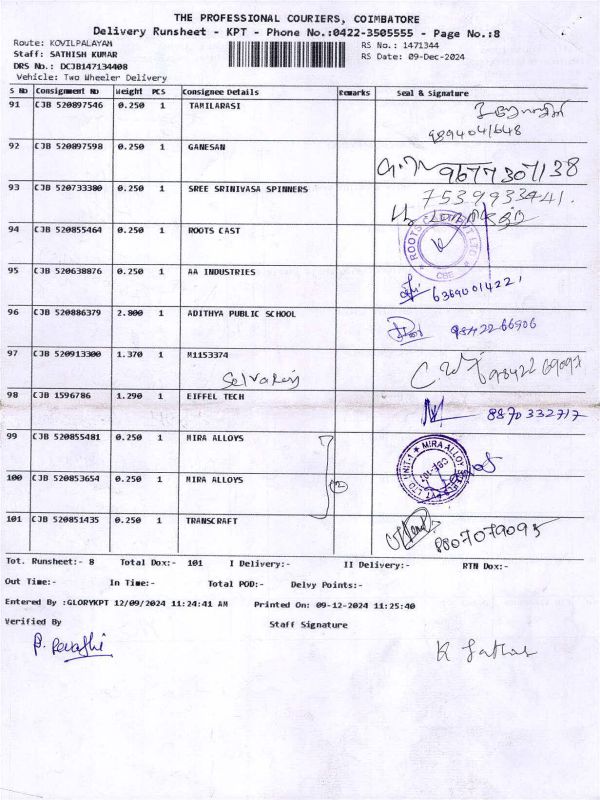 THE PROFESSIONAL COURIERS, COIMBATORE
Delivery Runsheet - KPT - Phone No.:0422-3505555 - Page No.:8
Route: KOVILPALAYAM
Staff: SATHISH KUMAR
DRS No.: DCJB147134408
Vehicle: Two Wheeler Delivery
RS No.: 1471344
RS Date: 09-Dec-2024
S No Consignment No Weight PCS Consignee Details Remarks Seal & Signature
91 CJB 520897546 0.250 1 TAMILARASI
9894041648
92 CJB 520897598 0.250 1 GANESAN
9677307138
93 CJB 520733380 0.250 1 SREE SRINIVASA SPINNERS
7539933441.
94 CJB 520855464 0.250 1 ROOTS CAST
ROOTS CAST PVT LTD
CBE
95 CJB 520638876 0.250 1 AA INDUSTRIES
63690014221
96 CJB 520886379 2.800 1 ADITHYA PUBLIC SCHOOL
98422 66906
97 CJB 520913300 1.370 1 M1153374
Selvaraj
98422 69097
98 CJB 1596786 1.290 1 EIFFEL TECH
8870 332717
99 CJB 520855481 0.250 1 MIRA ALLOYS
MIRA ALLOY
100 CJB 520853654 0.250 1 MIRA ALLOYS
2
101 CJB 520851435 0.250 1 TRANSCRAFT
8807079095
Tot. Runsheet:- 8 Total Dox:- 101 I Delivery:- II Delivery:- RTN Dox:-
Out Time:- In Time:- Total POD:- Delvy Points:-
Entered By :GLORYKPT 12/09/2024 11:24:41 AM Printed On: 09-12-2024 11:25:40
Verified By Staff Signature
P. Revathi